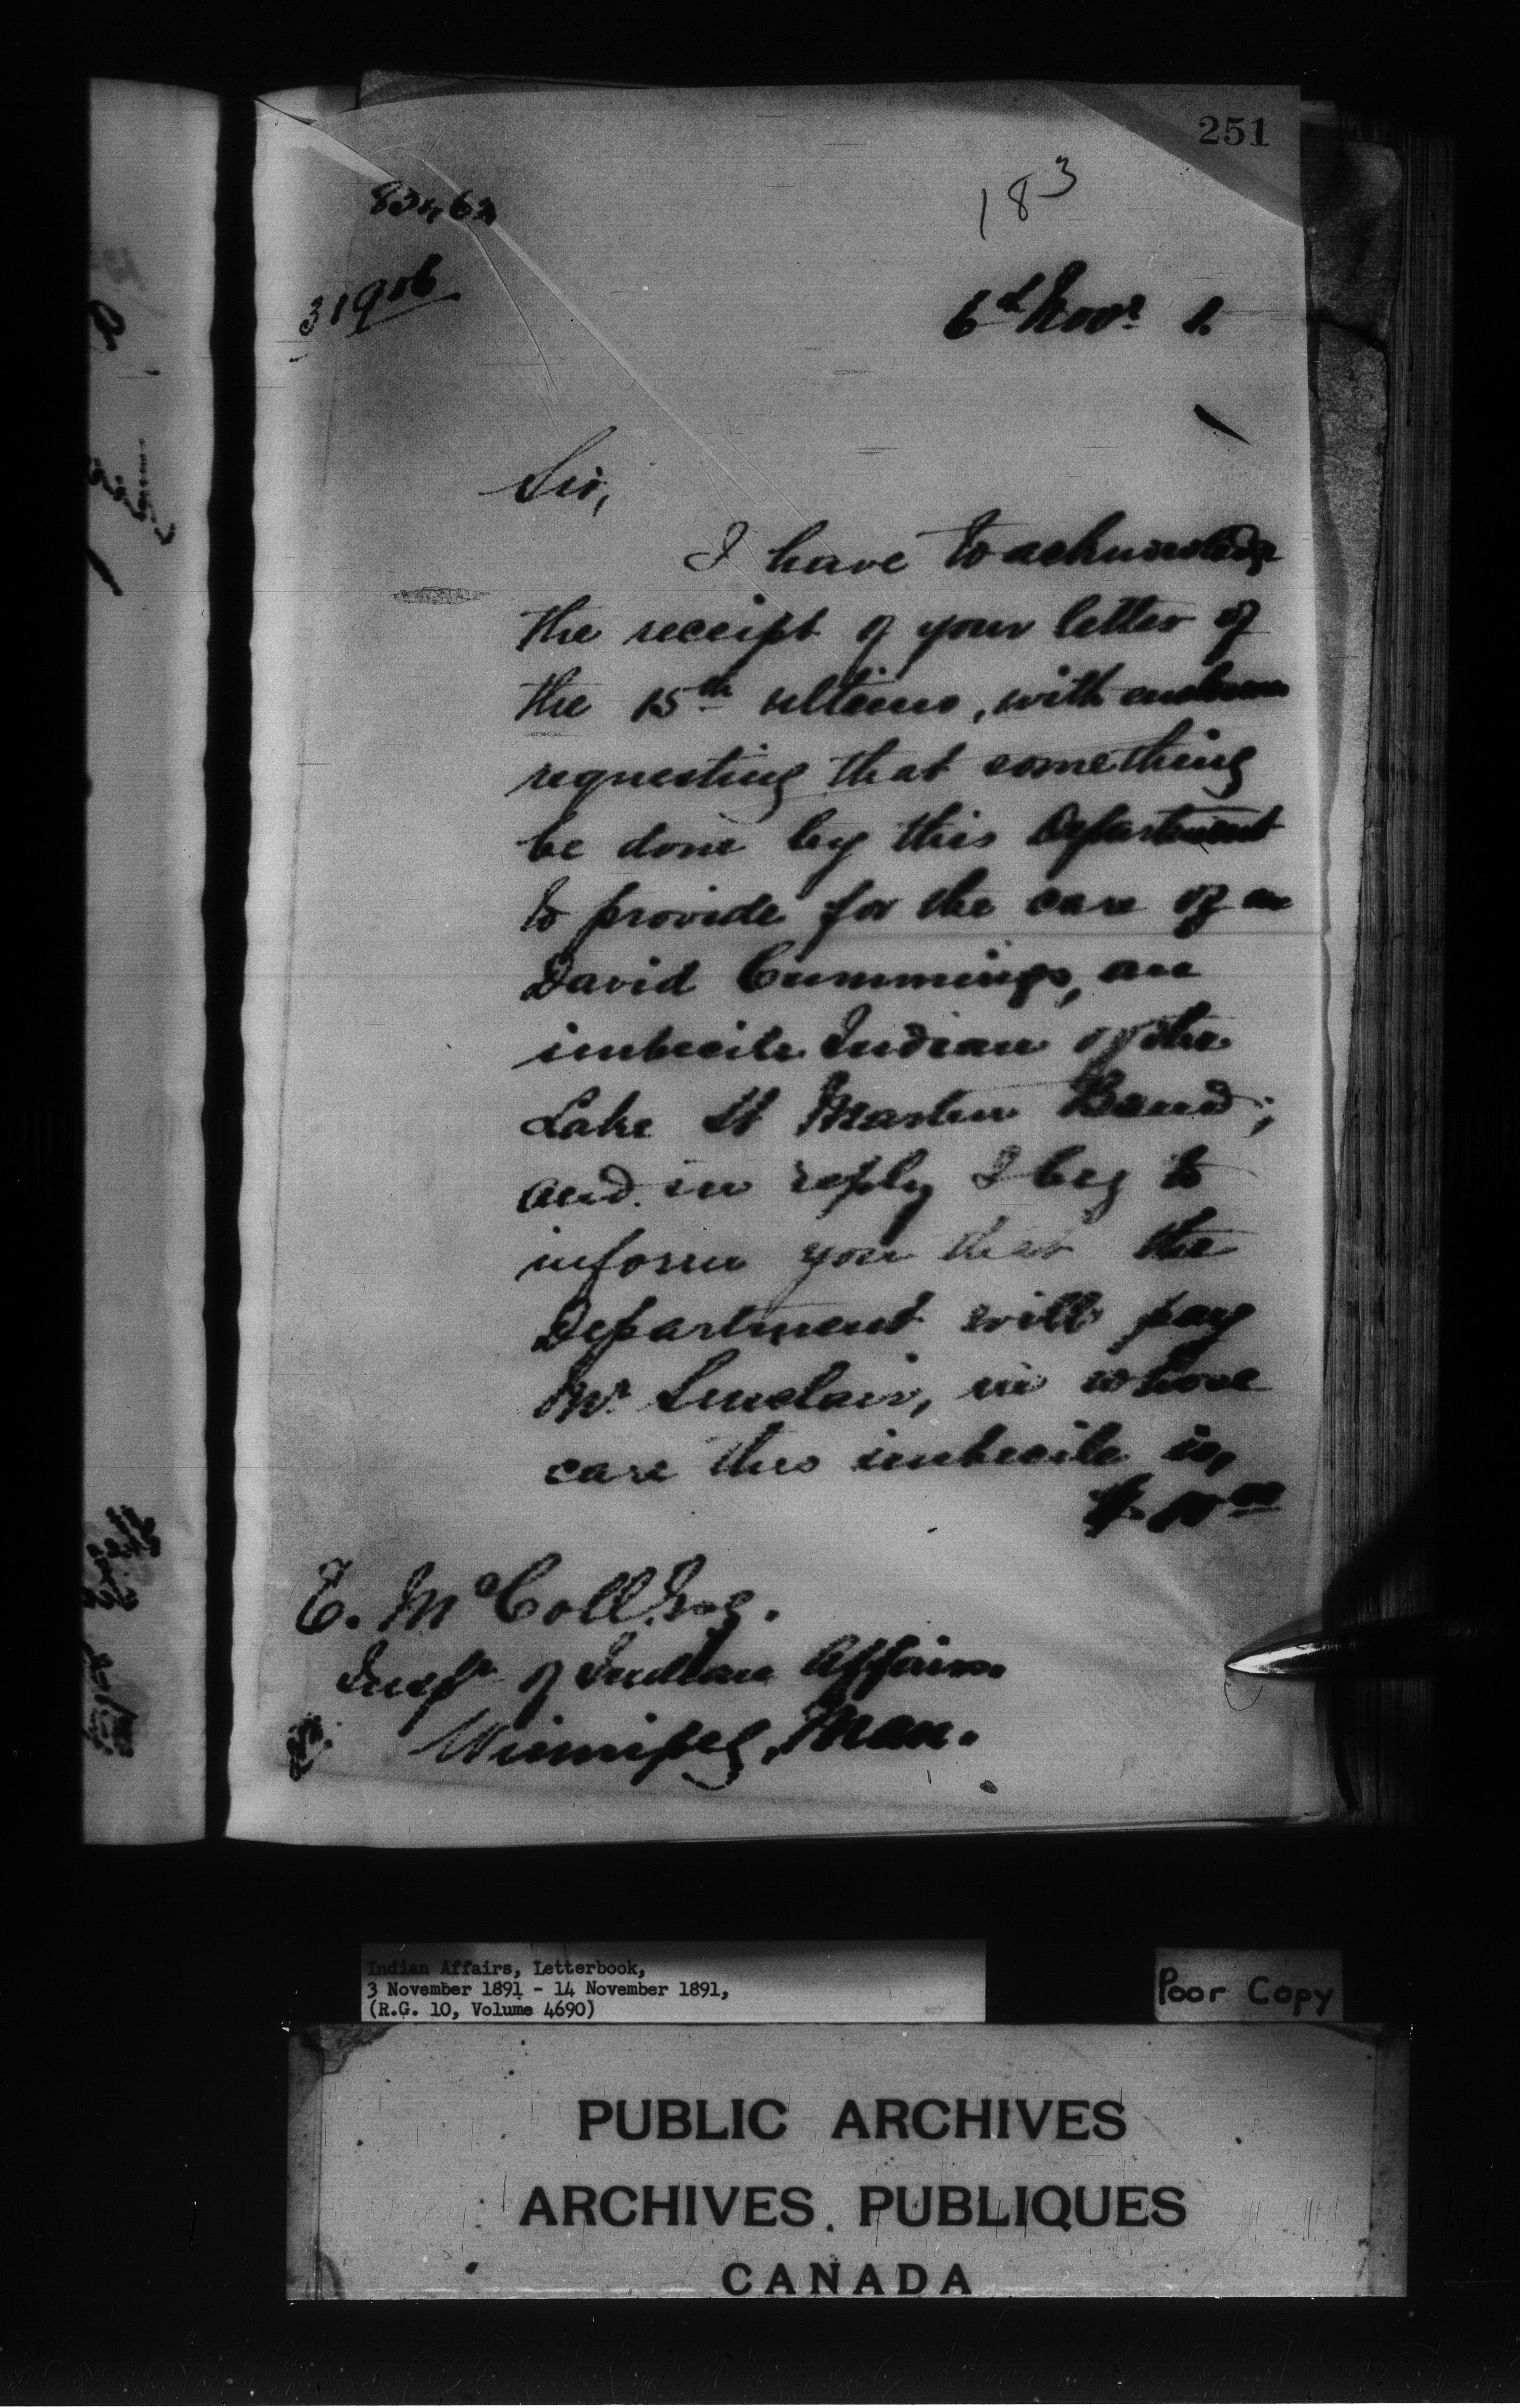 251
183
31906
6th Novr 1.
Sir,
I have to acknowledge
the receipt of your letter of
the 15th ultimo, with
requesting that something
be done by this Department
to provide for the care of
David Cummings, an
imbecile Indian of the
Lake St Martin Band;
and in reply I beg to
inform you that the
Department will pay
Mr Sinclair, in whose
care this imbecile is,
E. McColl Esq.
Inspr of Indian Affairs.
Winnipeg, Man.
Indian Affairs, Letterbook,
3 November 1891 - 14 November 1891,
(R.G. 10, Volume 4690)
Poor Copy
PUBLIC ARCHIVES
ARCHIVES PUBLIQUES
CANADA